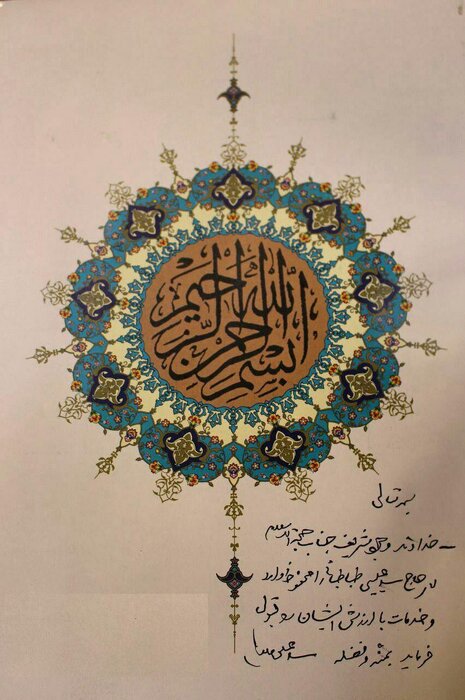 بسم الله الرحمن الرحیم
بسمه تعالی
خداوند وجود شریف جناب حجة الاسلام
حاج سید عیسی طباطبائی را محفوظ بدارد
و خدمات با ارزش ایشان را قبول
فرماید بمنه و فضله سید